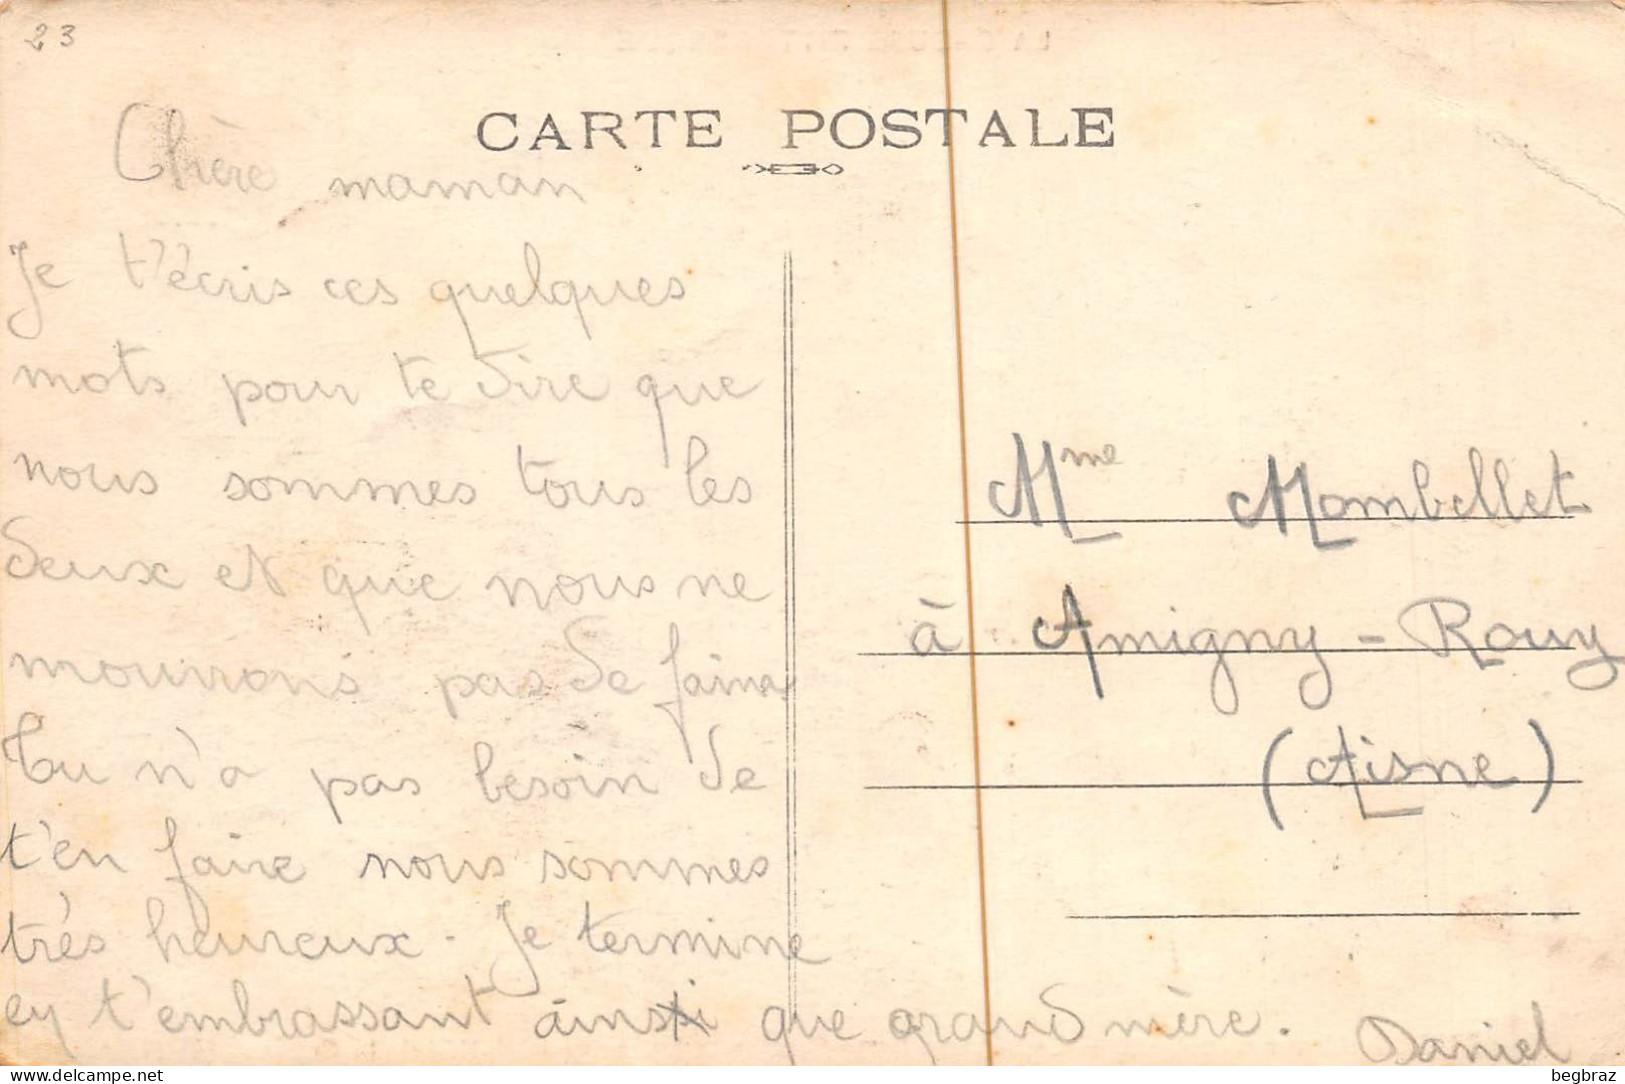 23
CARTE POSTALE
Chère maman
Je t'écris ces quelques
mots pour te dire que
nous sommes tous les
deux et que nous ne
mourrons pas de faim
Tu n'a pas besoin de
t'en faire nous sommes
très heureux - Je termine
en t'embrassant ainsi que grand mère.
Daniel
Mme Mombellet
à Amigny-Rouy
(Aisne)
delcampe.net
begbraz